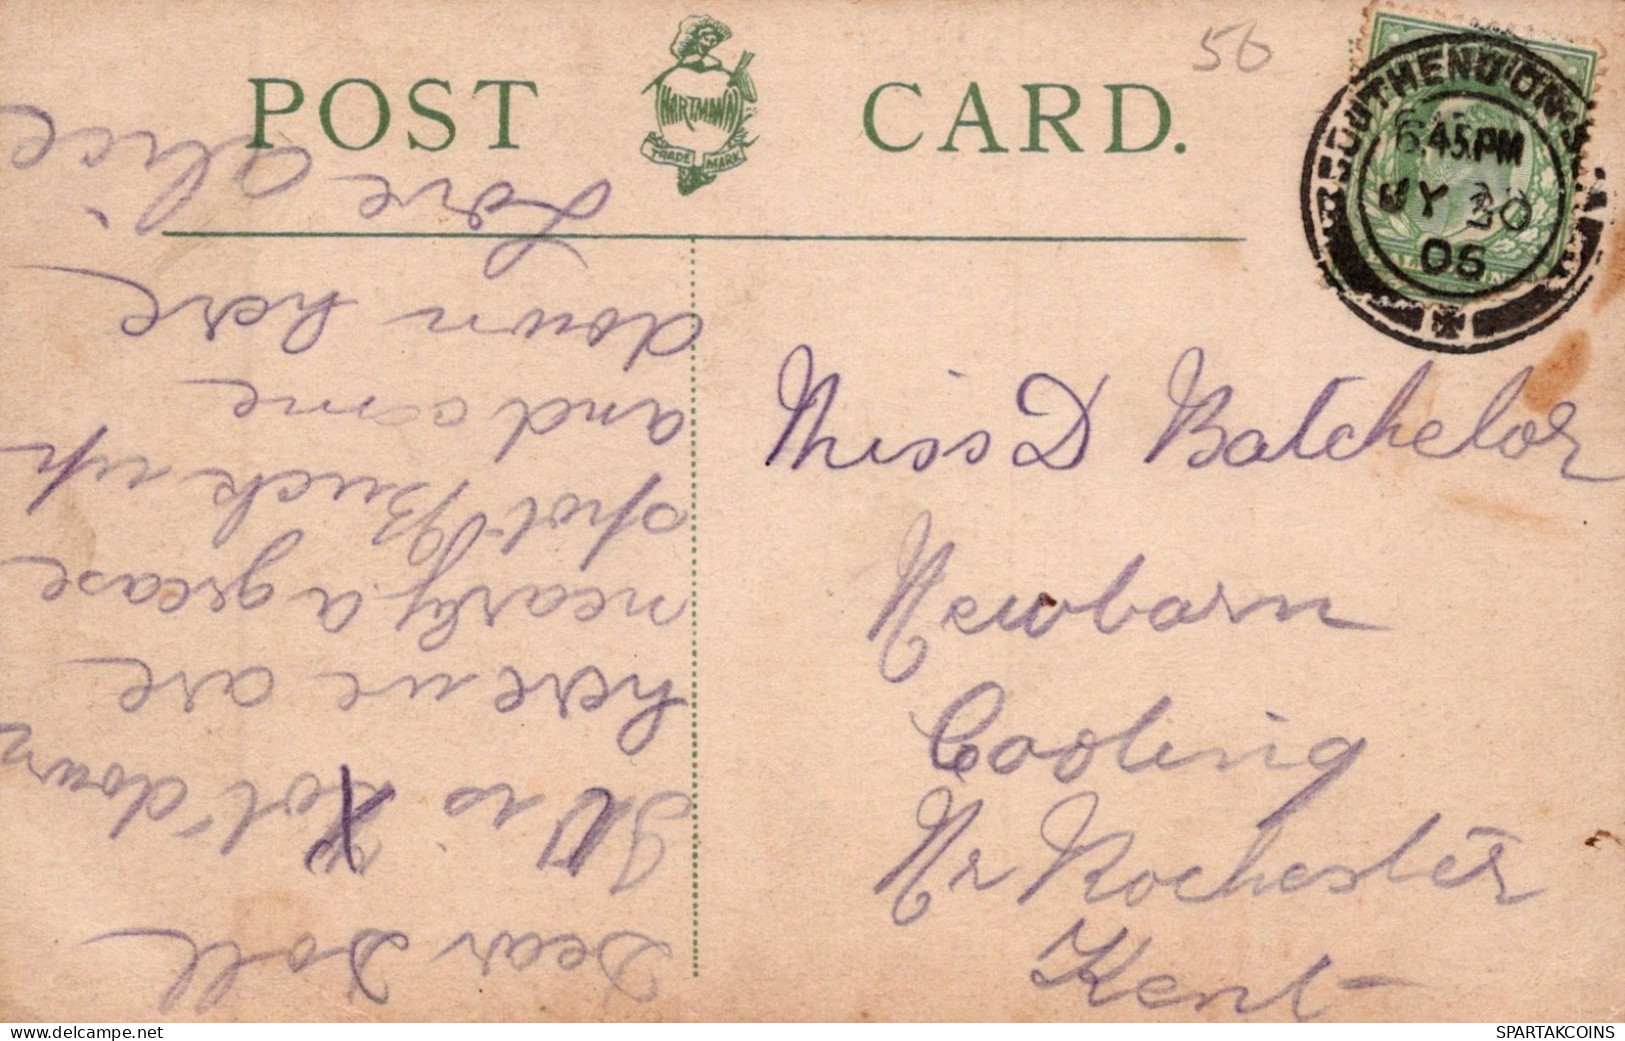 POST CARD.
HARTMANN
TRADE MARK
56
SOUTHEND-ON-SEA
6.45.PM
JY 30
06
Miss D Batchelor
Newbarn
Cooling
Nr Rochester
Kent
Dear Doll
It is Hot down
here we are
nearly a grease
spot. Buck up
and come
down here
Love Alice
delcampe.net
SPARTAKCOINS